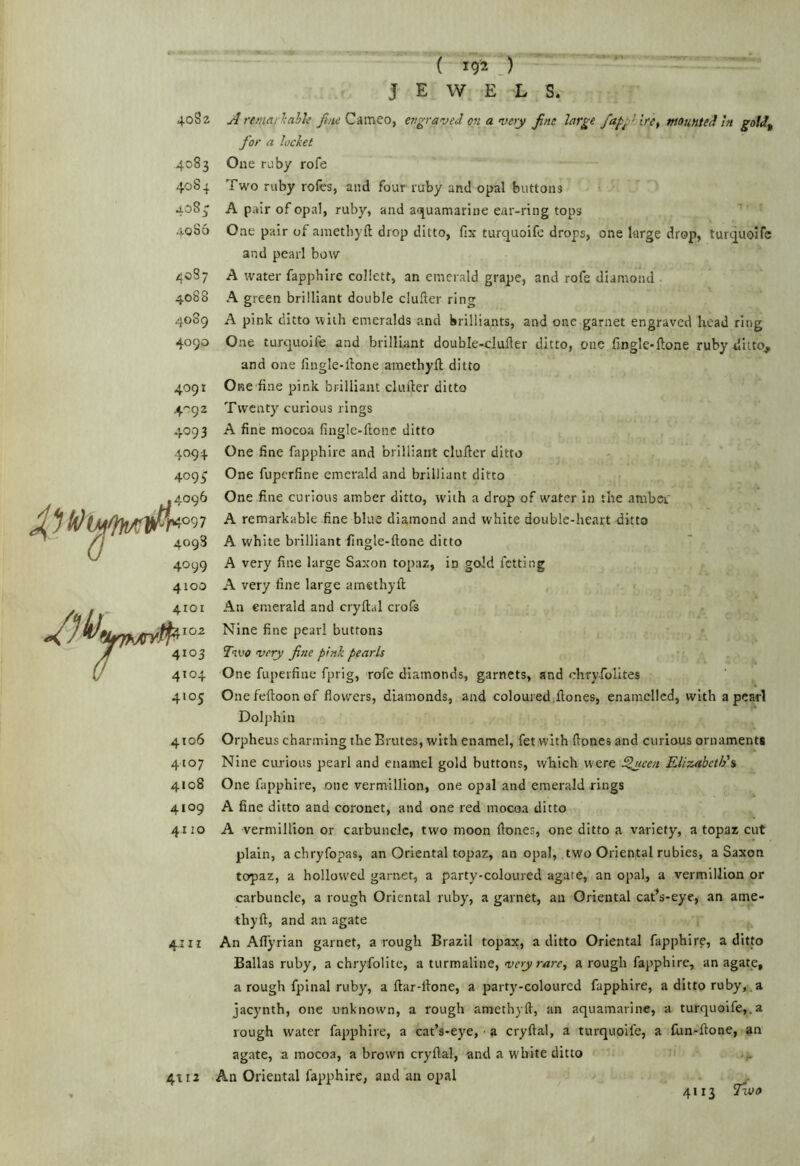 ( 192 )
JEWELS.
4082 A remarkable fine Cameo, engraved on a very fine large sapphire, mounted in gold,
for a locket
4083 One ruby rose
4084 Two ruby roses, and four ruby and opal buttons
4085 A pair of opal, ruby, and aquamarine ear-ring tops
4086 One pair of amethyst drop ditto, six turquoise drops, one large drop, turquoise
and pearl bow
4087 A water sapphire collett, an emerald grape, and rose diamond
4088 A green brilliant double cluster ring
4089 A pink ditto with emeralds and brilliants, and one garnet engraved head ring
4090 One turquoise and brilliant double-cluster ditto, one single-stone ruby ditto,
and one single-stone amethyst ditto
4091 One fine pink brilliant cluster ditto
4092 Twenty curious rings
4093 A fine mocoa single-stone ditto
4094 One fine sapphire and brilliant cluster ditto
4095 One superfine emerald and brilliant ditto
4096 One fine curious amber ditto, with a drop of water in the amber
4097 A remarkable fine blue diamond and white double-heart ditto
4098 A white brilliant single-stone ditto
4099 A very fine large Saxon topaz, in gold setting
4100 A very fine large amethyst
4101 An emerald and crystal cross
4102 Nine fine pearl buttons
4103 Two very fine pink pearls
4104 One superfine sprig, rose diamonds, garnets, and chrysolites
4105 One festoon of flowers, diamonds, and coloured stones, enamelled, with a pearl
Dolphin
4106 Orpheus charming the Brutes, with enamel, set with stones and curious ornaments
4107 Nine curious pearl and enamel gold buttons, which were Queen Elizabeth's
4108 One sapphire, one vermillion, one opal and emerald rings
4109 A fine ditto and coronet, and one red mocoa ditto
4110 A vermillion or carbuncle, two moon stones, one ditto a variety, a topaz cut
plain, a chrysopas, an Oriental topaz, an opal, two Oriental rubies, a Saxon
topaz, a hollowed garnet, a party-coloured agate, an opal, a vermillion or
carbuncle, a rough Oriental ruby, a garnet, an Oriental cat's-eye, an ame-
thyst, and an agate
4111 An Assyrian garnet, a rough Brazil topax, a ditto Oriental sapphire, a ditto
Ballas ruby, a chrysolite, a turmaline, very rare, a rough sapphire, an agate,
a rough spinal ruby, a star-stone, a party-coloured sapphire, a ditto ruby, a
jacynth, one unknown, a rough amethyst, an aquamarine, a turquoise, a
rough water sapphire, a cat's-eye, a crystal, a turquoise, a sun-stone, an
agate, a mocoa, a brown crystal, and a white ditto
4112 An Oriental sapphire, and an opal
4113 Two